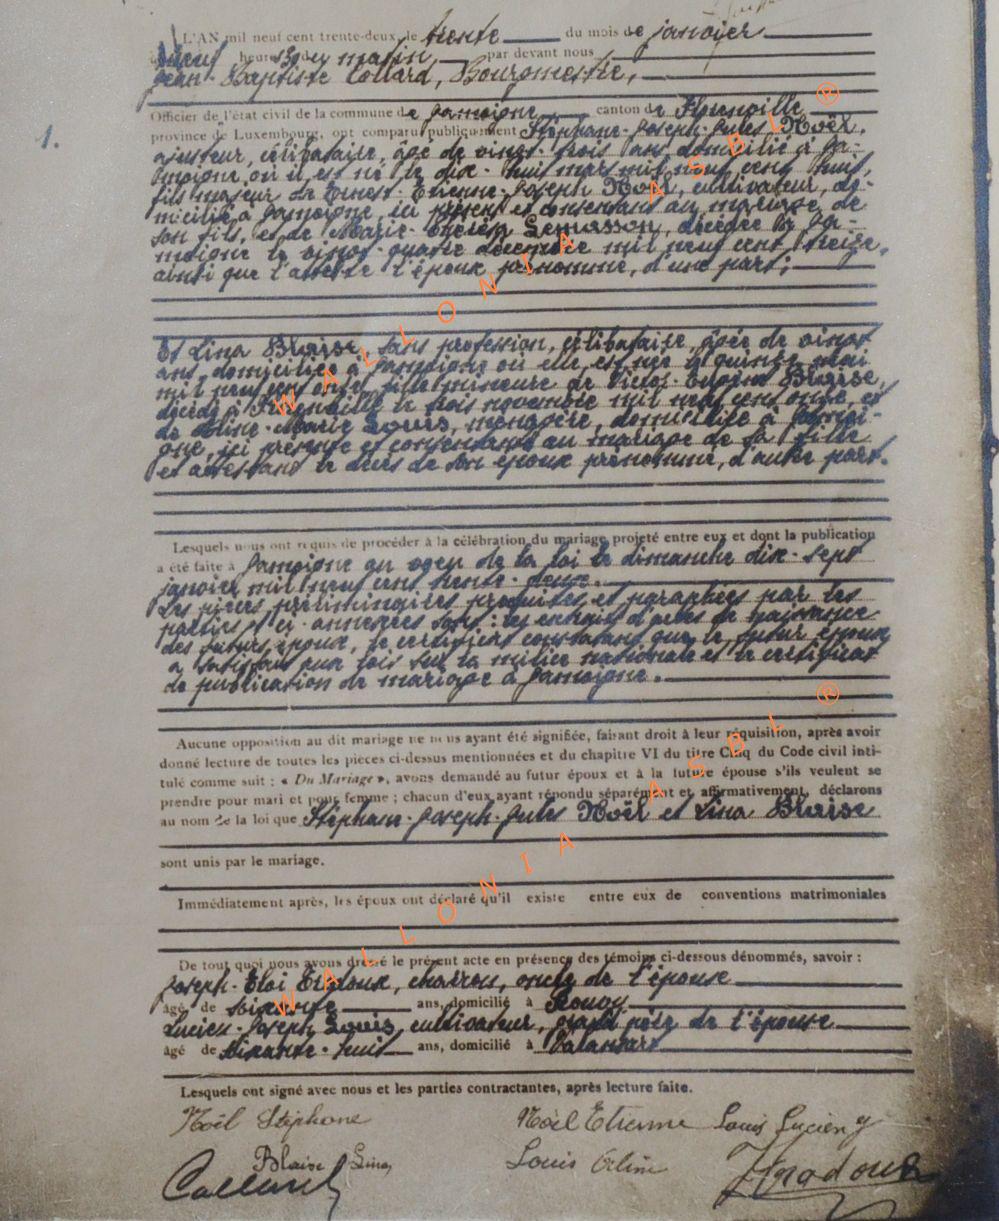 L'AN mil neuf cent trente-deux, le trente du mois de janvier
à neuf heures 30 du matin, par devant nous
Jean-Baptiste Collard, Bourgmestre,
Officier de l'état civil de la commune de Jamoigne, canton de Florenville
1.
province de Luxembourg, ont comparu publiquement Stéphane-Joseph-Jules Noël,
ajusteur, célibataire, âgé de vingt-trois ans domicilié à Ja-
moigne, où il est né le dix-huit mars mil neuf cent huit,
fils majeur de Ernest-Etienne-Joseph Noël, cultivateur, do-
micilié à Jamoigne, ici présent et consentant au mariage de
son fils, et de Marie-Thérésa Lemasson, décédée à Ja-
moigne le vingt-quatre décembre mil neuf cent treize,
ainsi que l'atteste l'époux prénommé, d'une part;
Et Lina Blaise, sans profession, célibataire, âgée de vingt
ans, domiciliée à Jamoigne où elle est née le quinze mai
mil neuf cent onze, fille mineure de Victor-Eugène Blaise,
décédé à le trois novembre mil neuf cent onze, et
de Marie Louis, ménagère, domiciliée à Jamoi-
gne, ici présente et consentante au mariage de sa fille
et attestant le décès de son époux prénommé, d'autre part.
Lesquels nous ont requis de procéder à la célébration du mariage projeté entre eux et dont la publication
a été faite à Jamoigne au voeu de la loi le dimanche dix-sept
janvier mil neuf cent trente-deux.
Les pièces préliminaires produites et paraphées par les
parties et ci-annexées sont: les extraits d'actes de naissance
des futurs époux, le certificat constatant que le futur époux
a satisfait aux lois sur la milice nationale et le certificat
de publication de mariage à Jamoigne.
Aucune opposition au dit mariage ne nous ayant été signifiée, faisant droit à leur réquisition, après avoir
donné lecture de toutes les pièces ci-dessus mentionnées et du chapitre VI du titre Cinq du Code civil inti-
tulé comme suit : « Du Mariage », avons demandé au futur époux et à la future épouse s'ils veulent se
prendre pour mari et pour femme ; chacun d'eux ayant répondu séparément et affirmativement, déclarons
au nom de la loi que Stéphane-Joseph-Jules Noël et Lina Blaise
sont unis par le mariage.
Immédiatement après, les époux ont déclaré qu'il existe entre eux de conventions matrimoniales
De tout quoi nous avons dressé le présent acte en présence des témoins ci-dessous dénommés, savoir :
Joseph-Eloi charron, oncle de l'épouse
âgé de soixante ans, domicilié à Rouvroy
Lucien-Joseph Louis, cultivateur, grand père de l'épouse
âgé de ans, domicilié à Valansart
Lesquels ont signé avec nous et les parties contractantes, après lecture faite.
Noël Stéphane Noël Etienne Louis Lucien
Blaise Lina Louis
Collard
WALLONIA ASBL ®
WALLONIA ASBL ®